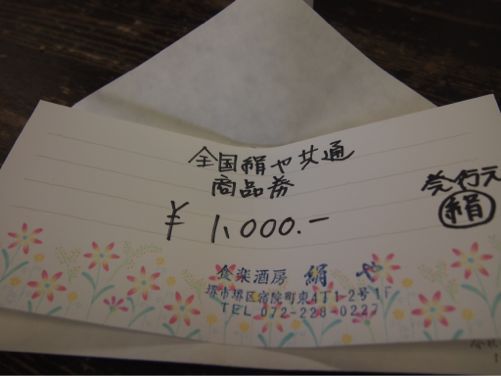 全国絹や共通
商品券
¥1,000.-
発行元
絹
食楽酒房 絹や
堺市堺区宿院町東4丁1-2号1F
TEL 072-228-0227